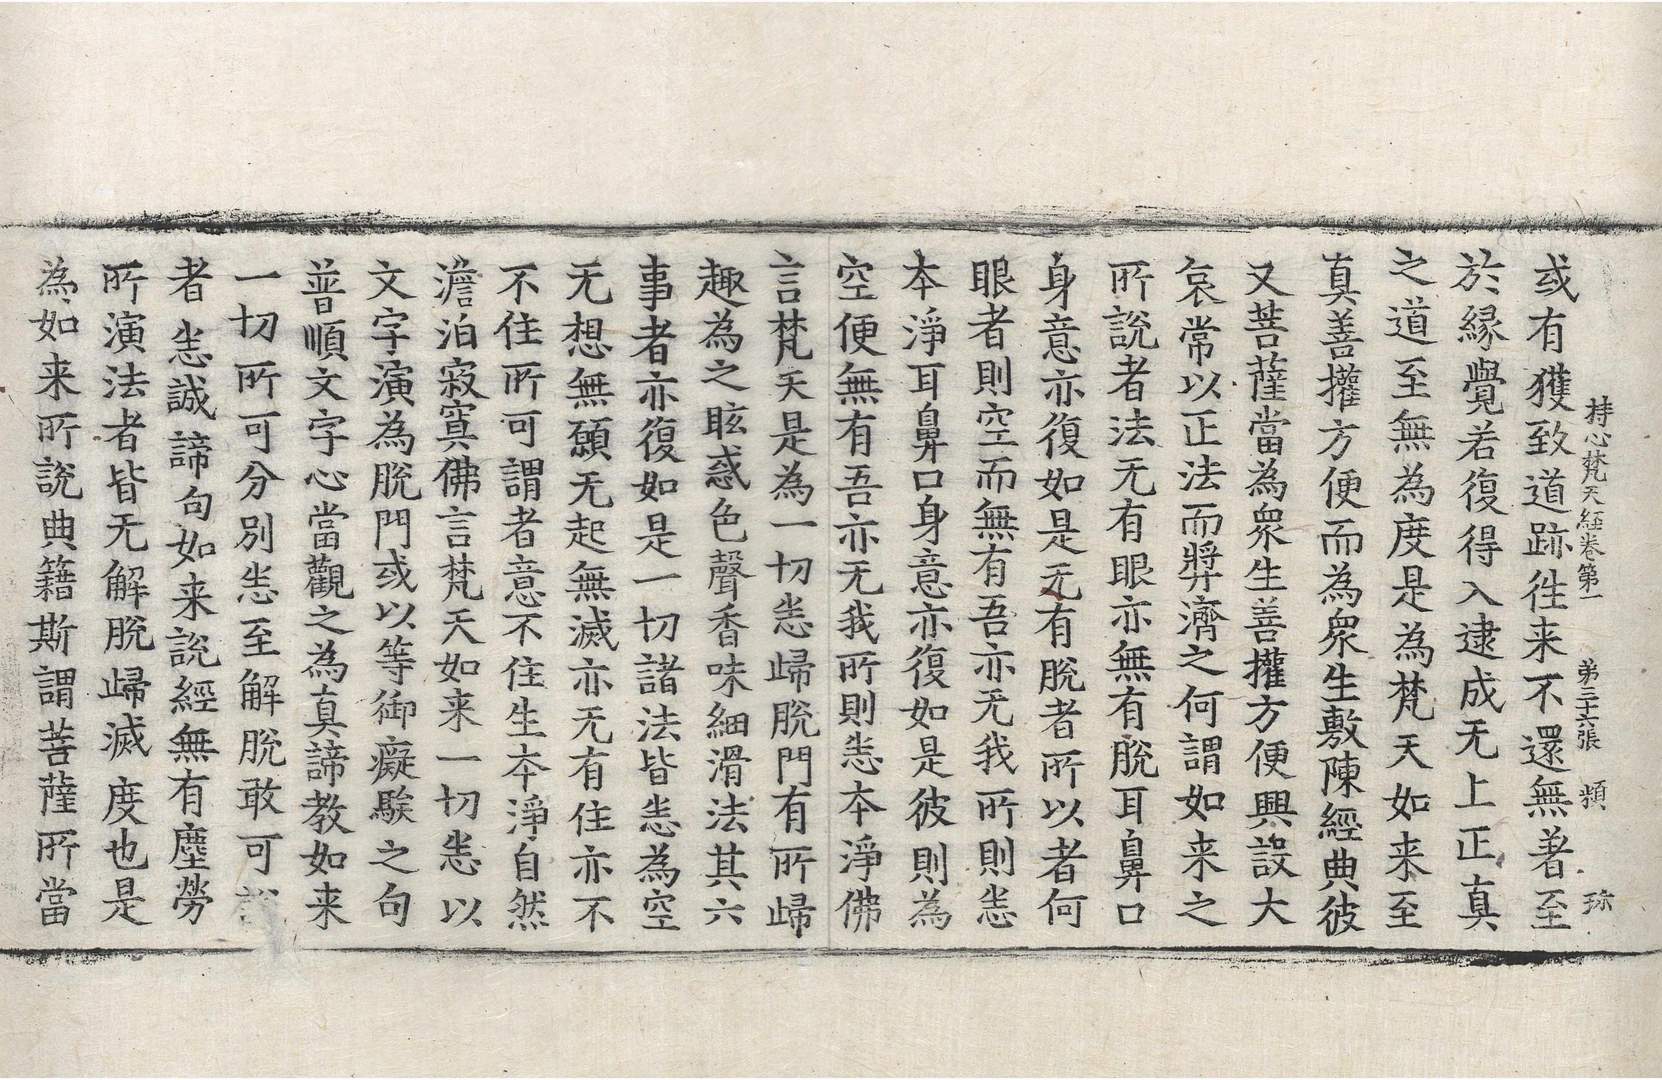 持心梵天經卷第一　第三十六張　頻　珎
或有獲致道跡往来不還無著至
於緣覺若復得入逮成无上正真
之道至無為度是為梵天如来至
真善攉方便而為衆生敷陳經典彼
又菩薩當為衆生善攉方便興設大
哀常以正法而弊濟之何謂如来之
所說者法无有眼亦無有脫耳鼻口
身意亦復如是无有脫者所以者何
眼者則空而無有吾亦无我所則恚
本淨耳鼻口身意亦復如是彼則為
空便無有吾亦无我所則恚本淨佛
言梵天是為一切恚歸脫門有所歸
趣為之眩惑色聲香味細滑法其六
事者亦復如是一切諸法皆恚為空
无想無願无起無滅亦无有住亦不
不住所可謂者意不住生本淨自然
澹泊寂寞佛言梵天如来一切恚以
文字演為脫門或以等御癡騃之句
普順文字心當觀之為真諦教如来
一切所可分別恚至解脫敢可
者恚誠諦句如来說經無有塵勞
所演法者皆无解脫歸滅度也是
為如来所說典籍斯謂菩薩所當